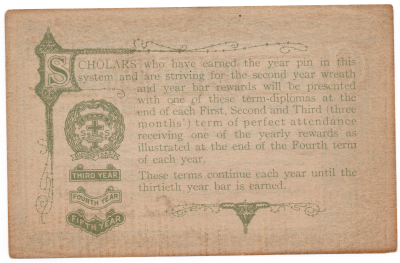 SCHOLARS who have earned the year pin in this
system and are striving for the second year wreath
and year bar rewards will be presented
with one of these term-diplomas at the
end of each First, Second and Third (three
months') term of perfect attendance
receiving one of the yearly rewards as
illustrated at the end of the Fourth term
of each year.
THIRD YEAR
These terms continue each year until the
thirtieth year bar is earned.
FOURTH YEAR
FIFTH YEAR